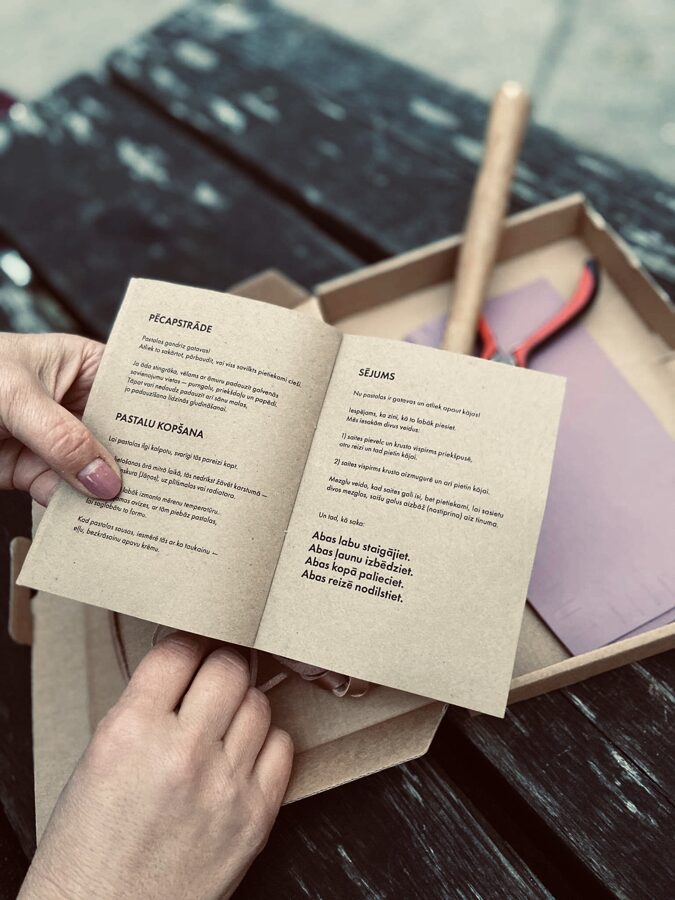 PĒCAPSTRĀDE
Pastalas gandrīz gatavas!
Atliek to sakārtot, pārbaudīt, vai viss savilkts pietiekami cieši.
Ja āda stingrāka, vēlams ar āmuru padauzīt galvenās
savienojumu vietas — purngalu, priekšdaļu un papēdi.
Tāpat var nedaudz padauzīt arī sānu malas,
jo padauzīšana līdzinās gludināšanai.
PASTALU KOPŠANA
Lai pastalas ilgi kalpotu, svarīgi tās pareizi kopt.
lietošanas ārā mitrā laikā, tās nedrīkst žāvēt karstumā —
ugunskura (Jāņos), uz plītsmalas vai radiatora.
labāk izmanto mērenu temperatūru.
avīzes, ar tām piebāz pastalas,
lai saglabātu to formu.
Kad pastalas sausas, iesmērē tās ar ko taukainu —
eļļu, bezkrāsainu apavu krēmu.
SĒJUMS
Nu pastalas ir gatavas un atliek apaut kājas!
Iespējams, ka zini, kā to labāk piesiet.
Mēs iesakām divus veidus:
1) saites pievelc un krusto vispirms priekšpusē,
otru reizi un tad pietin kājai.
2) saites vispirms krusto aizmugurē un arī pietin kājai.
Mezglu veido, kad saites gali īsi, bet pietiekami, lai sasietu
divus mezglus, saišu galus aizbāž (nostiprina) aiz tinuma.
Un tad, kā saka:
Abas labu staigājiet.
Abas ļaunu izbēdziet.
Abas kopā palieciet.
Abas reizē nodilstiet.